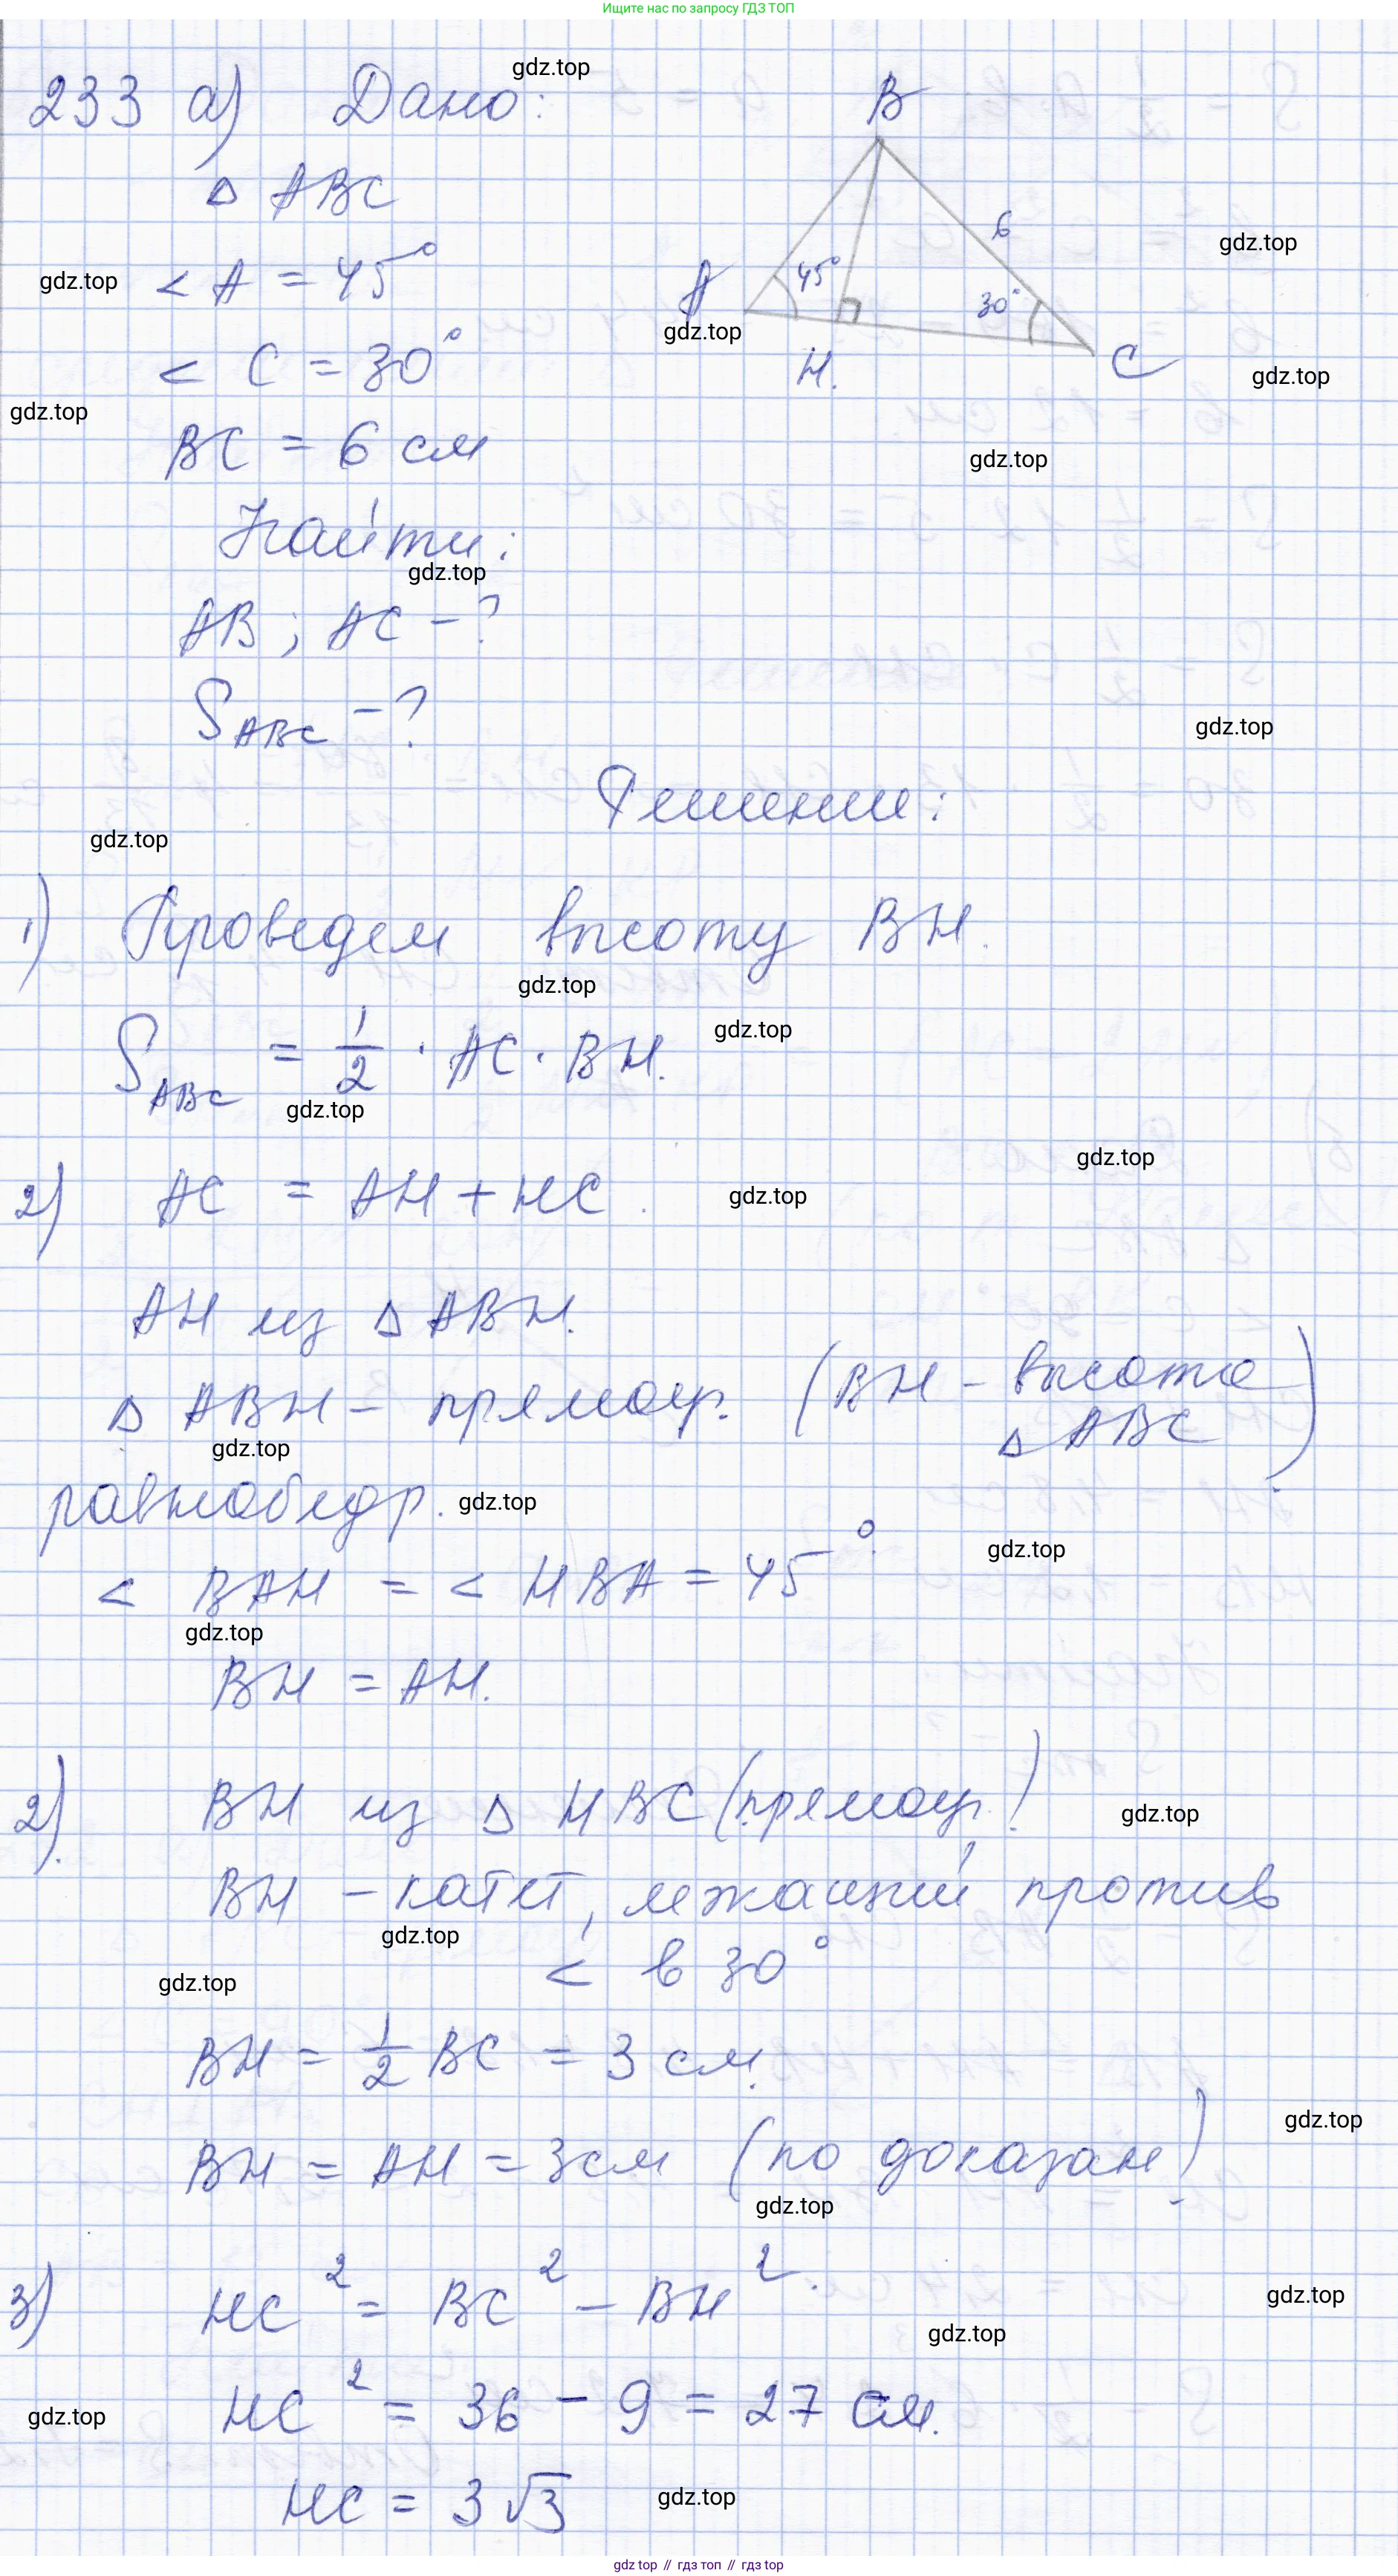 Ищите нас по запросу ГДЗ ТОП
233 а) Дано:
gdz.top
B
Δ ABC
6
gdz.top
< A = 45°
gdz.top
A
45°
30°
gdz.top
H.
C
< C = 30°
gdz.top
gdz.top
BC = 6 см
gdz.top
Найти:
gdz.top
AB ; AC - ?
S ABC - ?
gdz.top
Решение:
gdz.top
1) Проведем высоту BH.
gdz.top
S ABC = 1/2 · AC · BH.
gdz.top
gdz.top
gdz.top
2) AC = AH + HC.
gdz.top
AH из Δ ABH.
Δ ABH - прямоуг. (BH - высота Δ ABC)
gdz.top
равнобедр.
gdz.top
gdz.top
< BAH = < HBA = 45°.
gdz.top
BH = AH.
2). BH из Δ HBC (прямоуг.)
gdz.top
BH - катет, лежащий против
gdz.top
< в 30°
gdz.top
BH = 1/2 BC = 3 см.
gdz.top
BH = AH = 3 см (по доказан)
gdz.top
3) HC² = BC² - BH².
gdz.top
gdz.top
HC² = 36 - 9 = 27 см.
gdz.top
HC = 3√3
gdz.top
gdz top // гдз топ // gdz top